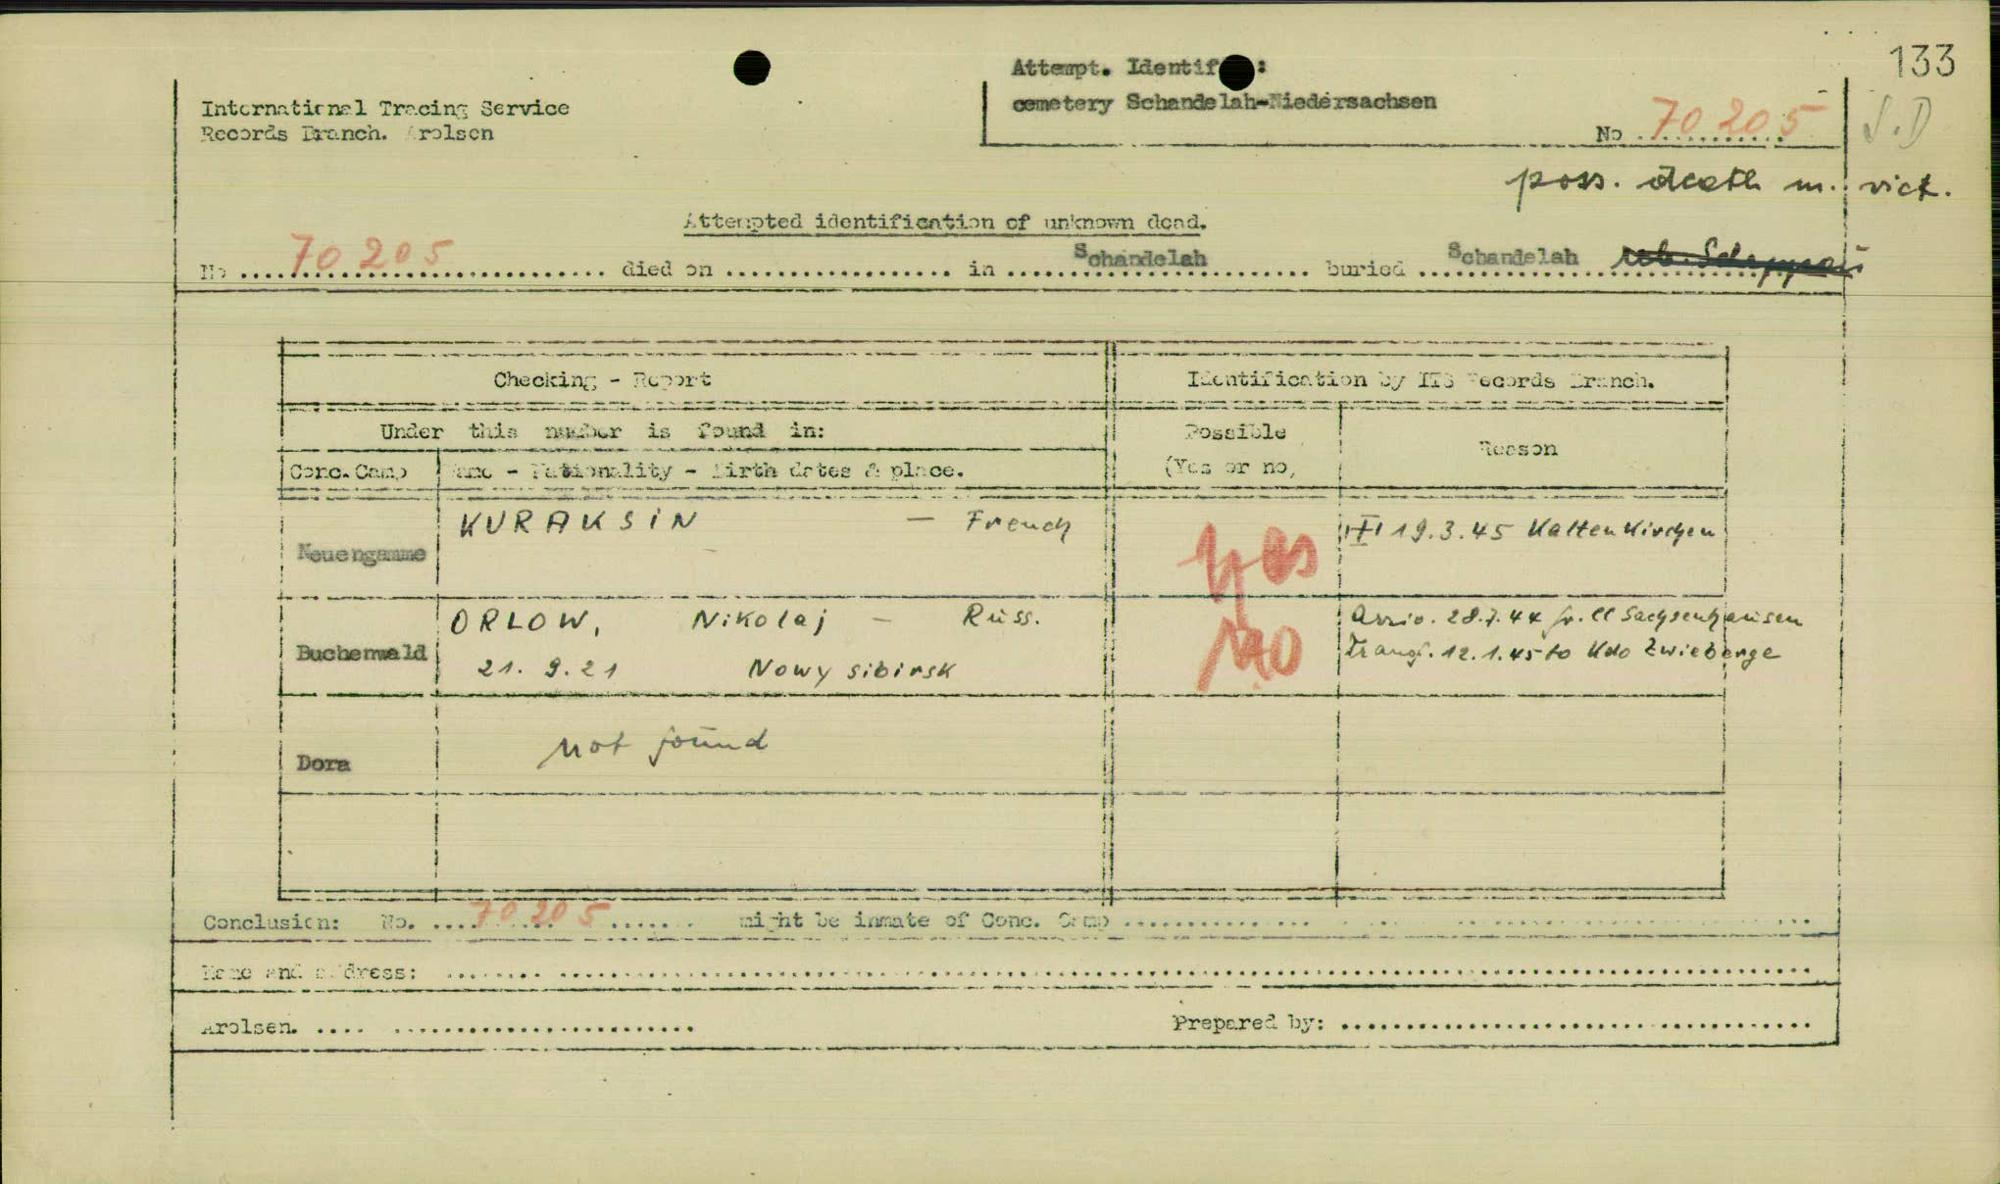 133
Attempt. Identif :
International Tracing Service
cemetery Schandelah-Niedersachsen
Records Branch. Arolsen
No 70205
S.D
poss. death m. vict.
Attempted identification of unknown dead.
No 70205 died on in Schandelah buried Schandelah
Checking - Report
Identification by ITS Records Branch.
Under this number is found in:
Possible
(Yes or no,
Reason
Conc. Camp
Name - Nationality - Birth dates & place.
Neuengamme
KURAKSIN — French
yes
19.3.45 Kaltenkirchen
Buchenwald
ORLOW, Nikolaj — Russ.
21. 9. 21 Nowy sibirsk
no
Arriv. 28.7.44 fr. CC Sachsenhausen
Transf. 12.1.45 to Kdo Zwieberge
Dora
not found
Conclusion: No. 70205 might be inmate of Conc. Camp
Name and address:
Arolsen.
Prepared by: